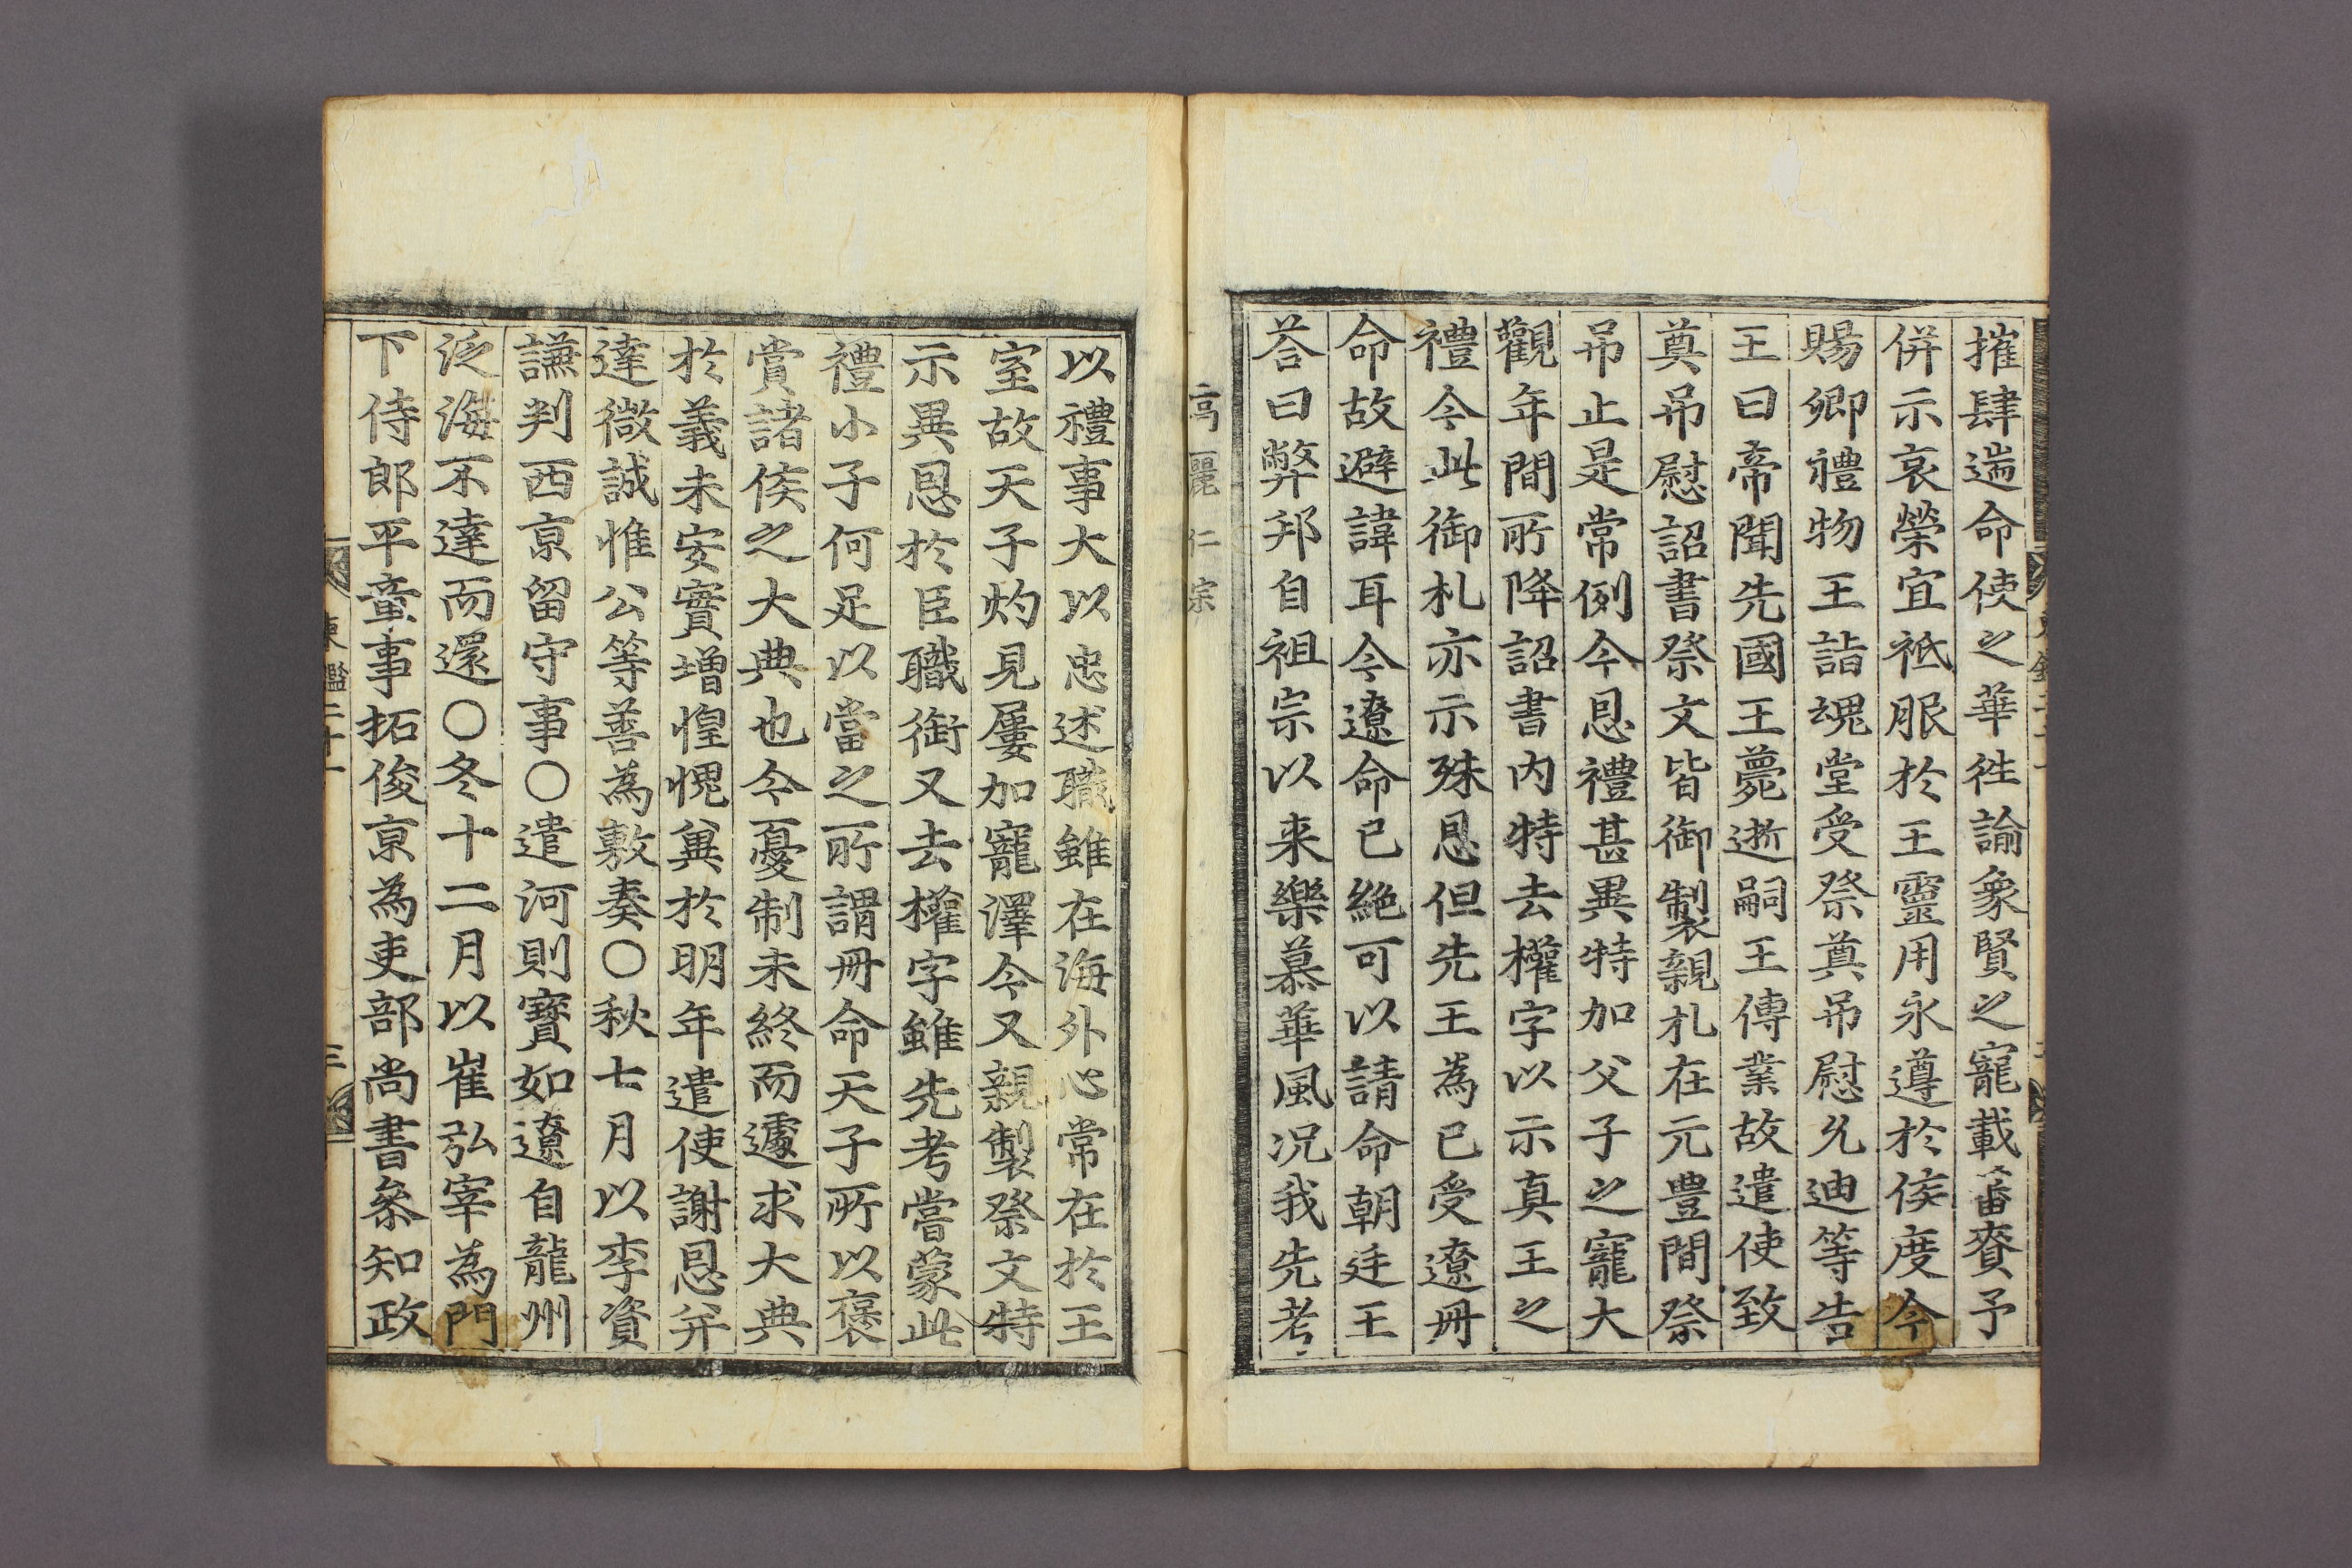 摧肆遄命使之華徃諭象賢之寵載蕃賚予
併示哀榮宜祗服於王靈用永遵於侯度今
賜卿禮物王詣魂堂受祭奠吊慰允迪等告
王曰帝聞先國王薨逝嗣王傳業故遣使致
奠吊慰詔書祭文皆御製親札在元豊間祭
吊止是常例今恩禮甚異特加父子之寵大
觀年間所降詔書內特去權字以示真王之
禮今此御札亦示殊恩但先王為已受遼冊
命故避諱耳今遼命已絶可以請命朝廷王
荅曰弊邦自祖宗以来樂慕華風况我先考
高麗仁宗
以禮事大以忠述職雖在海外心常在於王
室故天子灼見屢加寵澤今又親製祭文特
示異恩於臣職銜又去權字雖先考嘗蒙此
禮小子何足以當之所謂冊命天子所以褒
賞諸侯之大典也今憂制未終而遽求大典
於義未安實增惶愧兾於明年遣使謝恩并
達微誠惟公等善為敷奏〇秋七月以李資
謙判西京留守事〇遣河則寶如遼自龍州
泛海不達而還〇冬十二月以崔弘宰為門
下侍郎平章事拓俊京為吏部尚書叅知政
東鑑二十一
三